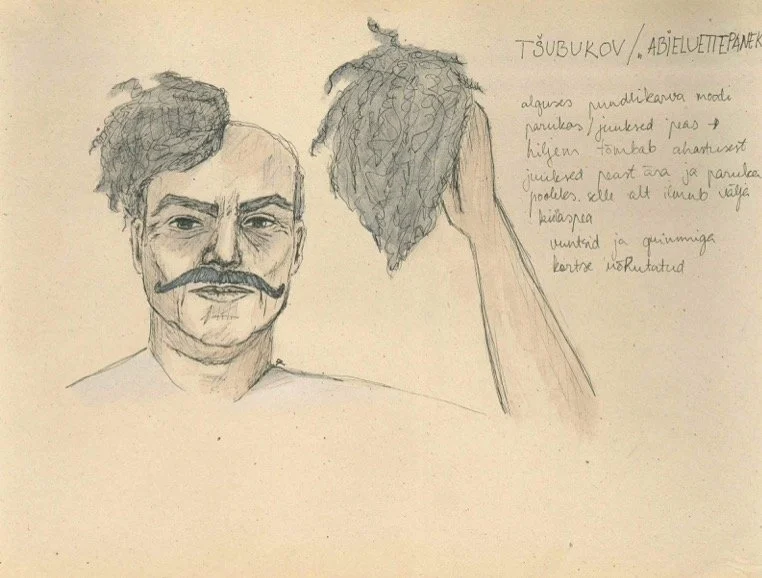 TŠUBUKOV / "ABIELUETTEPANEK
alguses puudlikarva moodi
parukas / juuksed peas →
hiljem tõmbab ahastusest
juuksed peast ära ja paruka
pooleks. selle alt ilmub välja
kiilaspea
vuntsid ja gummiga
kortse rõhutatud